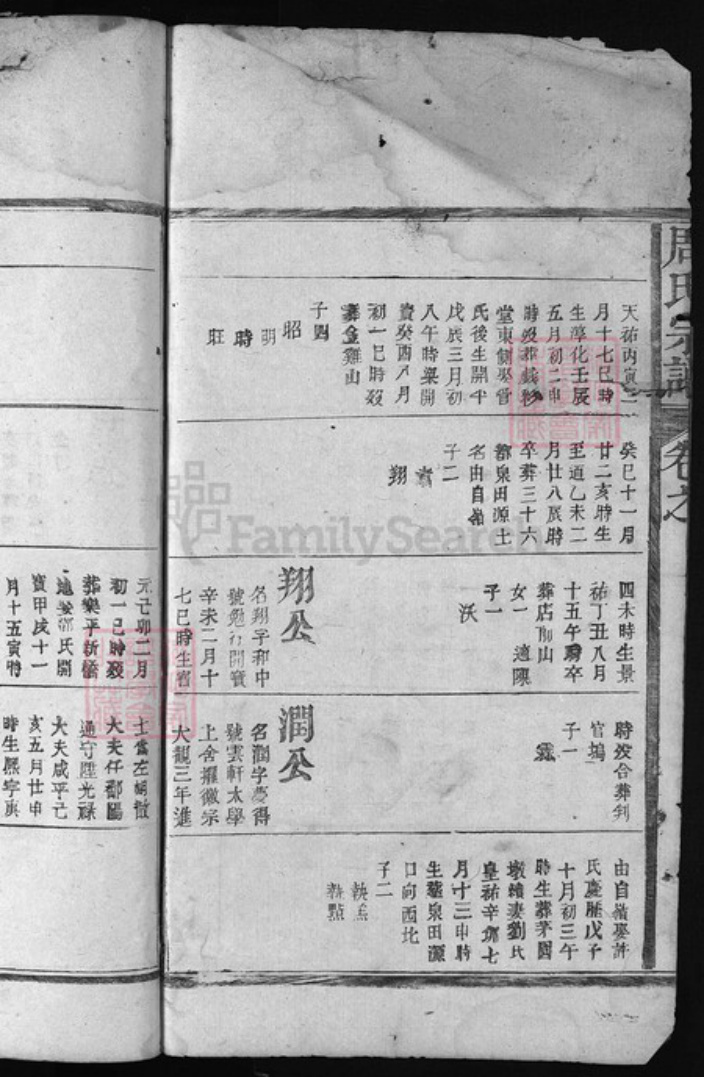 周氏宗譜
卷之
天祐丙寅三
月十七巳時
生淳化壬辰
五月初二申
時歿葬
堂東側娶曾
氏後生開平
戊辰三月初
八午時樂開
寶癸酉八月
初一巳時歿
葬金雞山
子四
昭
明
時
旺
癸巳十一月
廿二亥時生
至道乙未二
月廿八辰時
卒葬三十六
都泉田源土
名由自嶺
子二
翔
四未時生景
祐丁丑八月
十五午時卒
葬店前山
女一 適陳
子一
沃
翔公
名翔字和中
號勉行開寶
辛未二月十
七巳時生
時歿合葬判
官塢
子一
霖
潤公
名潤字慶得
號雲軒太學
上舍擢徽宗
大觀三年進
由自嶺娶許
氏慶歷戊子
十月初三午
時生葬茅園
墩續妻劉氏
皇祐辛卯七
月十三申時
生葬泉田源
口向西北
子二
執點
元己卯二月
初一巳時歿
葬樂平新橋
地娶鄒氏開
寶甲戌十一
月十五寅時
士當左朝散
大夫任鄱陽
通守陞光祿
大夫咸平己
亥五月廿申
時生熙寧庚
FamilySearch